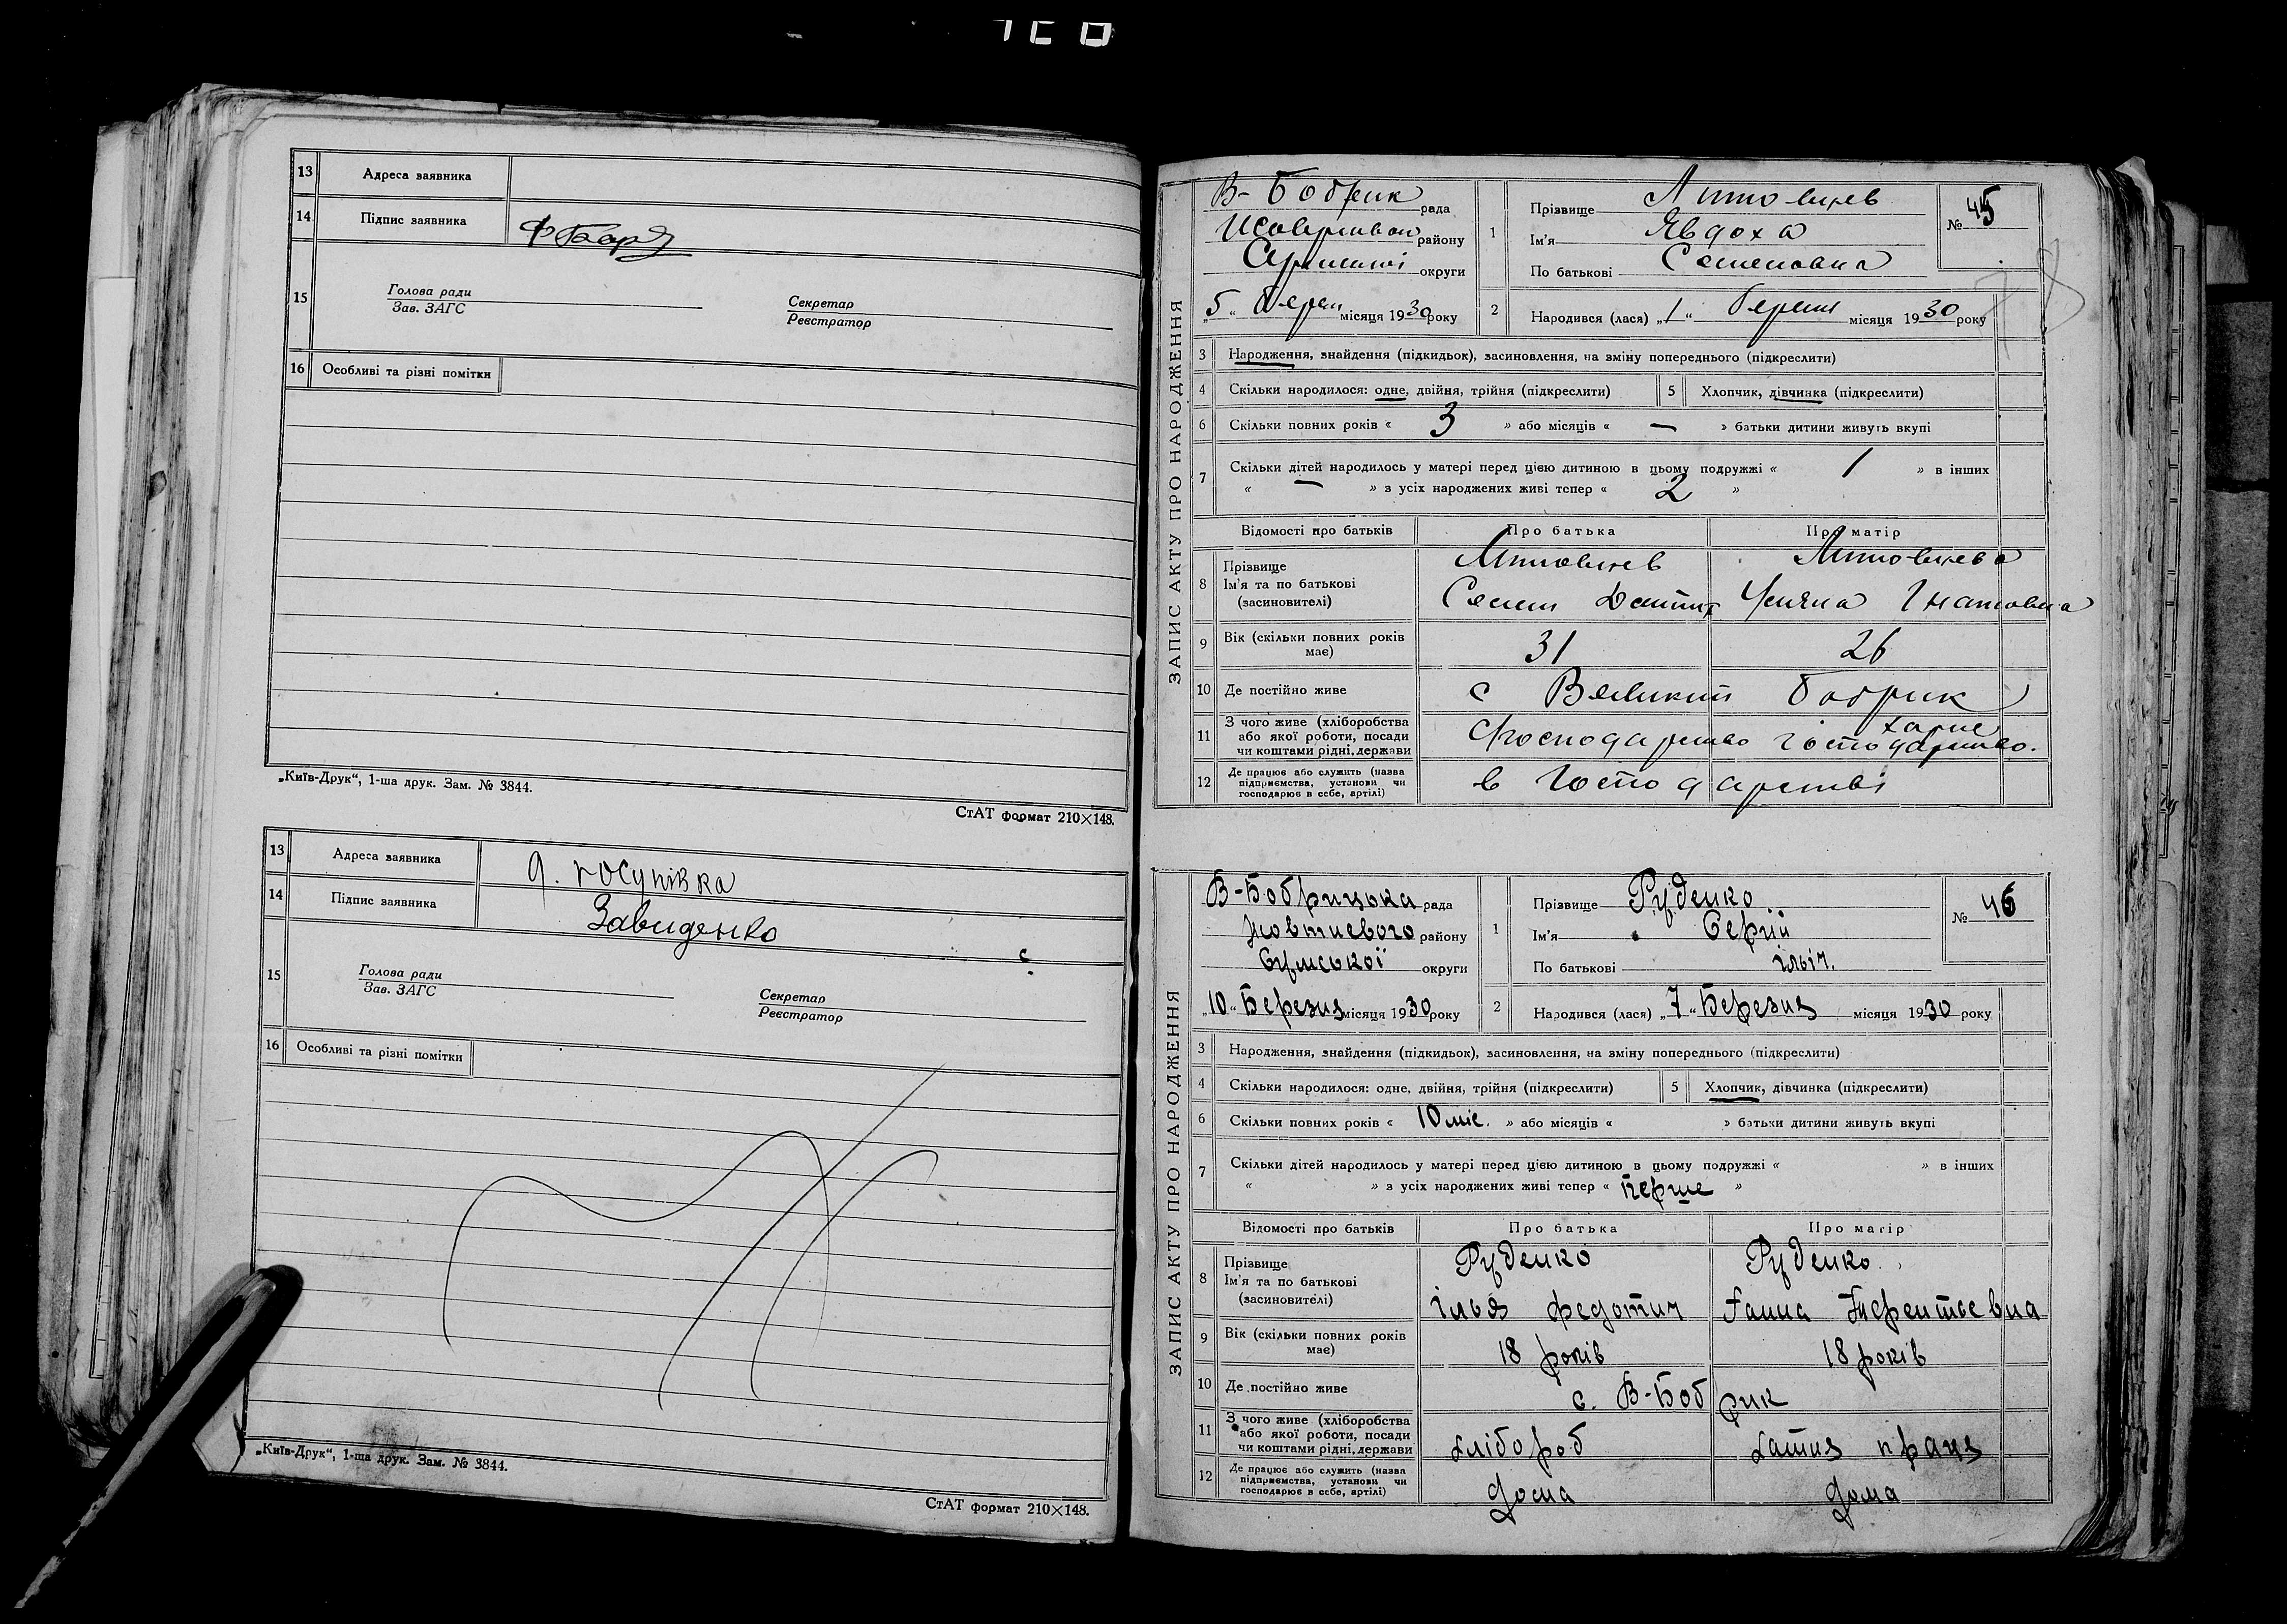 13 Адреса заявника
14 Підпис заявника
15 Голова ради Секретар
Зав. ЗАГС Реєстратор
16 Особливі та різні помітки
„Київ-Друк“, 1-ша друк. Зам. № 3844.
СтАТ формат 210×148.
13 Адреса заявника
14 Підпис заявника Завиденко
15 Голова ради Секретар
Зав. ЗАГС Реєстратор
16 Особливі та різні помітки
„Київ-Друк“, 1-ша друк. Зам. № 3844.
СтАТ формат 210×148.
ЗАПИС АКТУ ПРО НАРОДЖЕННЯ
В-Бобрик рада
району
округи
„5“ місяця 1930 року
1 Прізвище
Ім'я Явдоха
По батькові Семеновна
№ 45
2 Народився (лася) „1“ місяця 1930 року
3 Народження, знайдення (підкидьок), засиновлення, на зміну попереднього (підкреслити)
4 Скільки народилося: одне, двійня, трійня (підкреслити) 5 Хлопчик, дівчинка (підкреслити)
6 Скільки повних років « 3 » або місяців « — » батьки дитини живуть вкупі
7 Скільки дітей народилось у матері перед цією дитиною в цьому подружжі « 1 » в інших
« — » з усіх народжених живі тепер « 2 »
Відомості про батьків Про батька Про матір
8 Прізвище
Ім'я та по батькові
(засиновителі)
Семен Уляна Гнатовна
9 Вік (скільки повних років має) 31 26
10 Де постійно живе с Великий Бобрик
11 З чого живе (хліборобства
або якої роботи, посади
чи коштами рідні, держави
господарство. 
12 Де працює або служить (назва
підприємства, установи чи
господарює в себе, артілі)
в господарстві
ЗАПИС АКТУ ПРО НАРОДЖЕННЯ
В-Бобрицька рада
Жовтневого району
Сумської округи
„10“ Березня місяця 1930 року
1 Прізвище Руденко
Ім'я Сергій
По батькові Ільіч.
№ 46
2 Народився (лася) „7“ Березня місяця 1930 року
3 Народження, знайдення (підкидьок), засиновлення, на зміну попереднього (підкреслити)
4 Скільки народилося: одне, двійня, трійня (підкреслити) 5 Хлопчик, дівчинка (підкреслити)
6 Скільки повних років « 10 міс. » або місяців « » батьки дитини живуть вкупі
7 Скільки дітей народилось у матері перед цією дитиною в цьому подружжі « » в інших
« » з усіх народжених живі тепер « перше »
Відомості про батьків Про батька Про матір
8 Прізвище Руденко Руденко
Ім'я та по батькові Ілья Федотич Ганна Терентьевна
(засиновителі)
9 Вік (скільки повних років має) 18 років 18 років
10 Де постійно живе с. В-Бобрик
11 З чого живе (хліборобства
або якої роботи, посади
чи коштами рідні, держави
хлібороб хатня праця
12 Де працює або служить (назва
підприємства, установи чи
господарює в себе, артілі)
дома дома